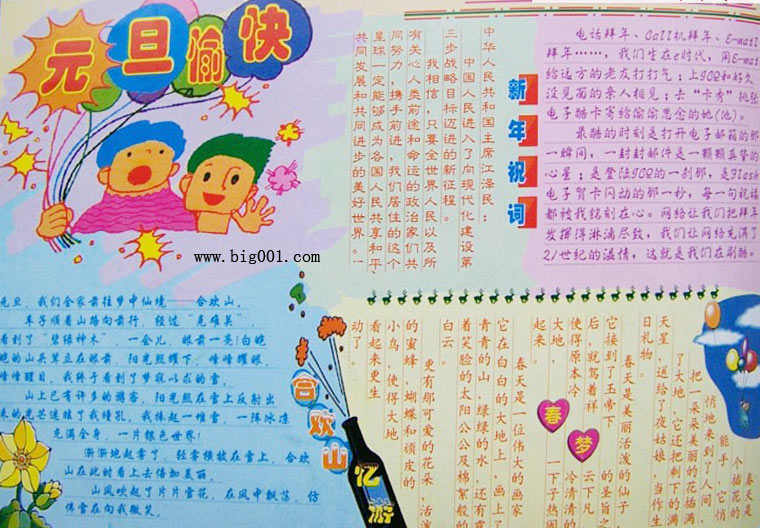 元旦愉快
www.big001.com
新年祝词
中华人民共和国主席江泽民：
中国人民进入了向现代化建设第
三步战略目标迈进的新征程。
我相信，只要全世界人民以及所
有关心人类前途和命运的政治家们共
同努力，携手前进，我们居住的这个
星球一定能够成为各国人民共享和平、
共同发展和共同进步的美好世界。
电话拜年、Call机拜年、E-mail
拜年……，我们生在e时代，用E-mail
给远方的老友打打气；上ICQ和好久
没见面的亲人相见；去“卡秀”挑张
电子酷卡寄给偷偷思念的她(他)。
最酷的时刻是打开电子邮箱的那
一瞬间，一封封邮件是一颗颗真挚的
心星；是登陆ICQ的一刹那，是Flash
电子贺卡闪动的那一秒，每一句祝福
都被我铭刻在心。网络让我们把拜年
发挥得淋漓尽致，我们让网络充满了
21世纪的温情，这就是我们在刷酷。
元旦，我们全家前往梦中仙境——合欢山。
车子顺着山路向前行，经过“克难关”
看到了“碧绿神木”一会儿，眼前一亮！白皑
皑的山头耸立在眼前，阳光照耀下，峰峰耀眼，
峰峰醒目，我终于看到了梦寐以求的雪。
山上已有许多的游客，阳光照在雪上反射出
来的光芒迷眩了我瞳孔，我捧起一堆雪，一阵冰凉
充满全身，一片银色世界！
渐渐地起雾了，轻雾横放在雪上，合欢
山在此时看上去倍加美丽。
山风吹起了片片雪花，在风中飘荡，仿
佛雪在向我微笑。
合欢山
忆游
春梦
春天是
个插花的
能手，它悄
悄地来到了人间
把一朵朵美丽的花插满
了大地，它还把剩下的满
天星，送给了夜姑娘，当作
日礼物。
春天是美丽活泼的仙子
它接到了玉帝下的圣旨之
后，就驾着祥云下凡
使得原本冷冷清清的
大地，一下子热闹
起来。
春天是一位伟大的画家
它在白白的大地上，画上了
青青的山，绿绿的水，还有露
着笑脸的太阳公公及棉絮般的
白云。
更有那可爱的花朵，活泼
的蜜蜂，蝴蝶和顽皮的
小鸟，使得大地
看起来更生
动了。